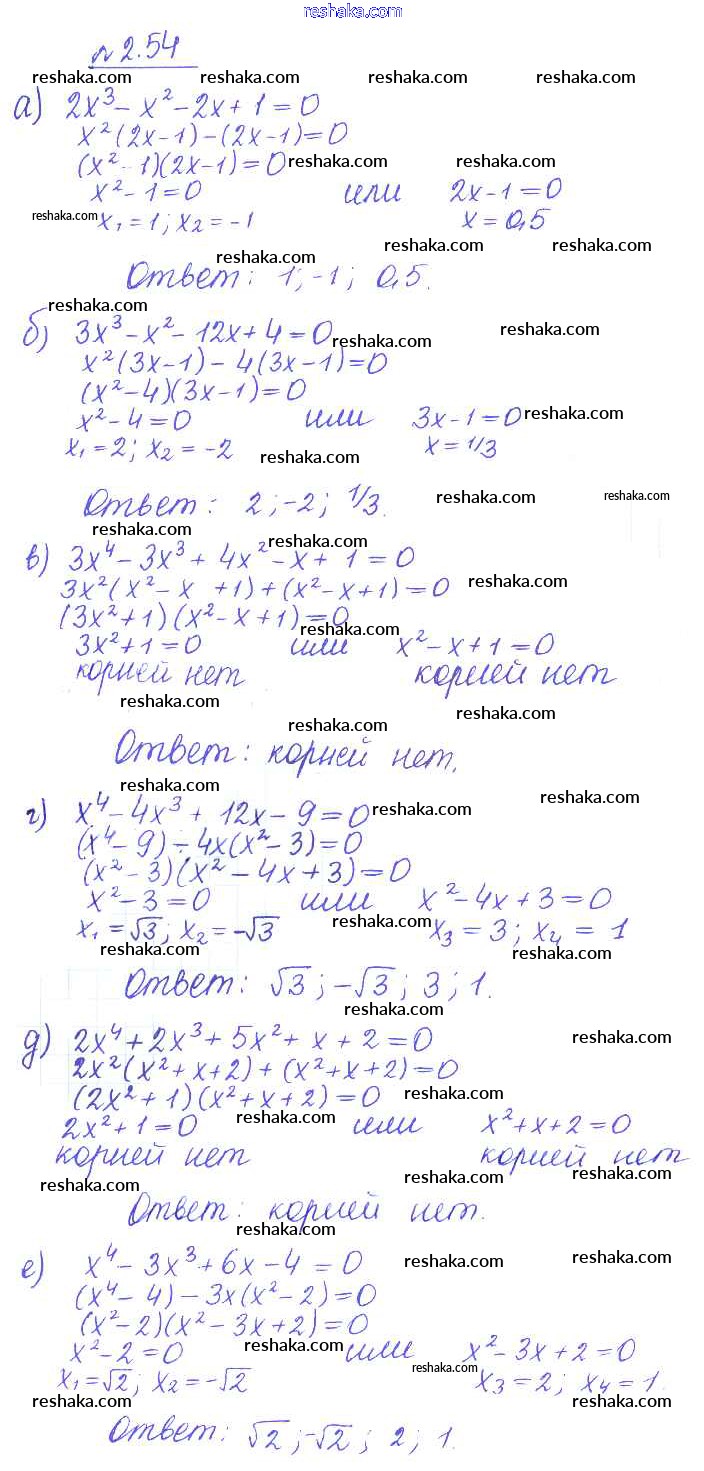 www.reshaka.com
№2.54
reshaka.com reshaka.com reshaka.com reshaka.com
а) 2x³ - x² - 2x + 1 = 0
x²(2x-1) - (2x-1) = 0
(x² - 1)(2x-1) = 0 reshaka.com reshaka.com
x² - 1 = 0 или 2x - 1 = 0
reshaka.com x₁ = 1; x₂ = -1 x = 0,5
reshaka.com reshaka.com
Ответ: 1; -1; 0,5.
reshaka.com
б) 3x³ - x² - 12x + 4 = 0 reshaka.com reshaka.com
x²(3x-1) - 4(3x-1) = 0
(x²-4)(3x-1) = 0
x² - 4 = 0 или 3x - 1 = 0 reshaka.com
x₁ = 2; x₂ = -2 x = 1/3
reshaka.com
Ответ: 2; -2; 1/3. reshaka.com reshaka.com
reshaka.com reshaka.com
в) 3x⁴ - 3x³ + 4x² - x + 1 = 0
3x²(x² - x + 1) + (x² - x + 1) = 0 reshaka.com
(3x²+1)(x² - x + 1) = 0
reshaka.com
3x² + 1 = 0 или x² - x + 1 = 0
корней нет корней нет
reshaka.com reshaka.com
reshaka.com
Ответ: корней нет.
reshaka.com reshaka.com
г) x⁴ - 4x³ + 12x - 9 = 0 reshaka.com
(x⁴ - 9) - 4x(x² - 3) = 0
(x² - 3)(x² - 4x + 3) = 0
x² - 3 = 0 или x² - 4x + 3 = 0
reshaka.com
x₁ = √3; x₂ = -√3 x₃ = 3; x₄ = 1
reshaka.com
Ответ: √3; -√3; 3; 1.
reshaka.com
д) 2x⁴ + 2x³ + 5x² + x + 2 = 0 reshaka.com
2x²(x² + x + 2) + (x² + x + 2) = 0
(2x² + 1)(x² + x + 2) = 0
reshaka.com reshaka.com
2x² + 1 = 0 или x² + x + 2 = 0
корней нет корней нет
reshaka.com reshaka.com reshaka.com
Ответ: корней нет.
reshaka.com
е) x⁴ - 3x³ + 6x - 4 = 0 reshaka.com reshaka.com
(x⁴ - 4) - 3x(x² - 2) = 0
(x² - 2)(x² - 3x + 2) = 0
reshaka.com
x² - 2 = 0 или x² - 3x + 2 = 0
reshaka.com
x₁ = √2; x₂ = -√2 x₃ = 2; x₄ = 1.
reshaka.com reshaka.com reshaka.com
Ответ: √2; -√2; 2; 1.